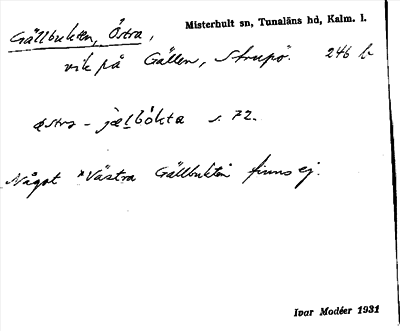 Gällbukten, Östra,
Misterhult sn, Tunaläns hd, Kalm. l.
vik på Gällen, Strupö. 246 b
østra - jæl̲bókta s. 72.
Något "Västra Gällbukten" finns ej.
Ivar Modéer 1931